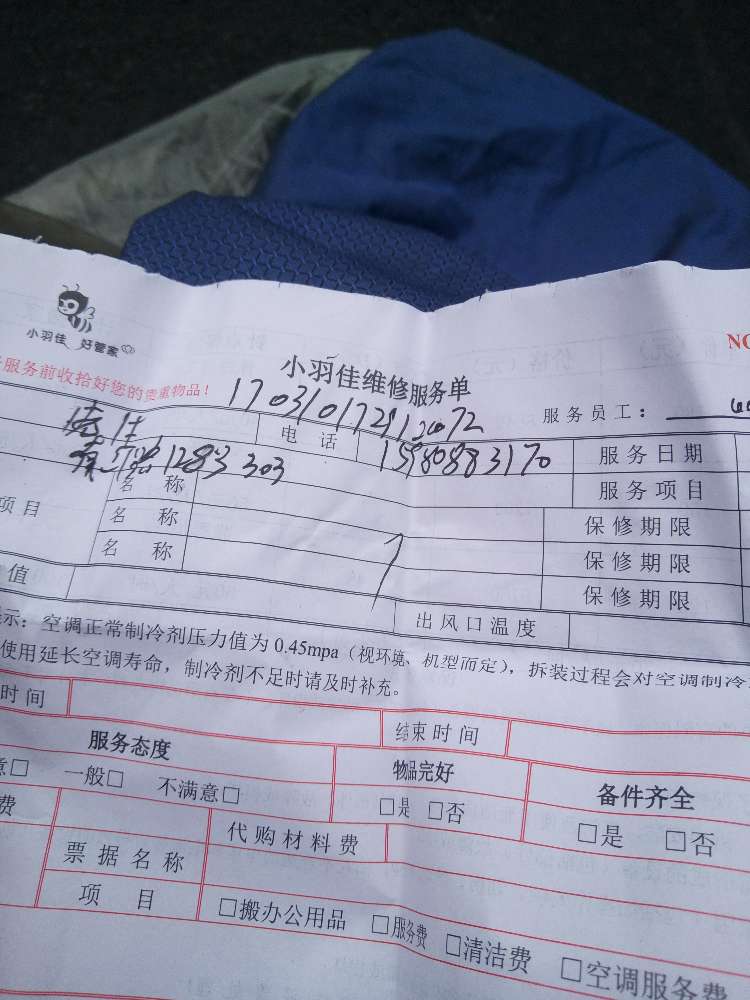 小羽佳 好管家
NO
小羽佳维修服务单
服务前收拾好您的贵重物品！
服务员工：
电 话
15980883170
服务日期
1283 303
名 称
服务项目
项目
名 称
保修期限
名 称
保修期限
值
保修期限
出风口温度
示：空调正常制冷剂压力值为 0.45mpa（视环境、机型而定），拆装过程会对空调制冷
使用延长空调寿命，制冷剂不足时请及时补充。
时间
结束时间
服务态度
物品完好
备件齐全
意□ 一般□ 不满意□
□是 □否
□是 □否
费
代购材料费
票据名称
项 目
□搬办公用品 □服务费 □清洁费 □空调服务费